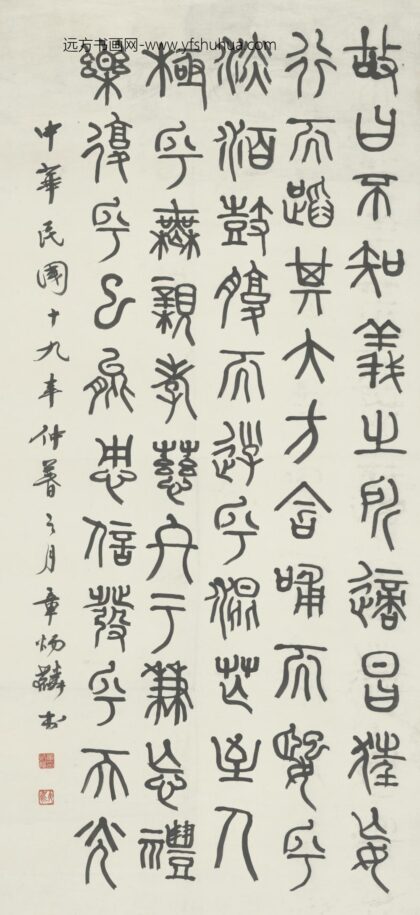 远方书画网-www.yfshuhua.com
故曰不知義之所適昌狂妄
行而蹈其大方含哺而乎
淡洦鼓腹而遊乎混芒至人
極乎無親孝慈終于兼忘禮
樂復乎已能忠信發乎天光
中華民國十九年仲春之月章炳麟書